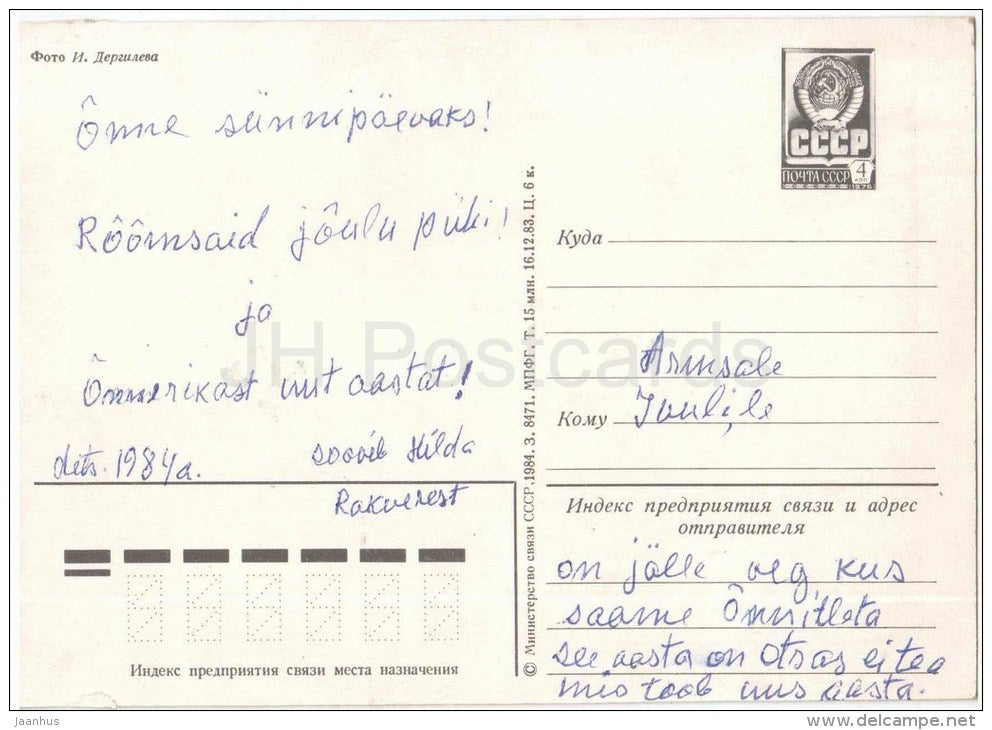 Фото И. Дергилева
Õnne sünnipäevaks!
Rõõmsaid jõulu püki!
ja
Õnnerikast uut aastat!
dets. 1984a.
soovib Hilda
Rakverest
Индекс предприятия связи места назначения
© Министерство связи СССР. 1984. З. 8471. МПФГ. Т. 15 млн. 16.12.83. Ц. 6 к.
СССР
ПОЧТА СССР
4
КОП
1976
Куда
Armsale
Кому
Juulile
Индекс предприятия связи и адрес
отправителя
on jälle aeg, kus
saame Õnnitleta
see aasta on Otsas ei tea
mis toob uus aasta.
JH Postcards
jaanhus
www.delcampe.net